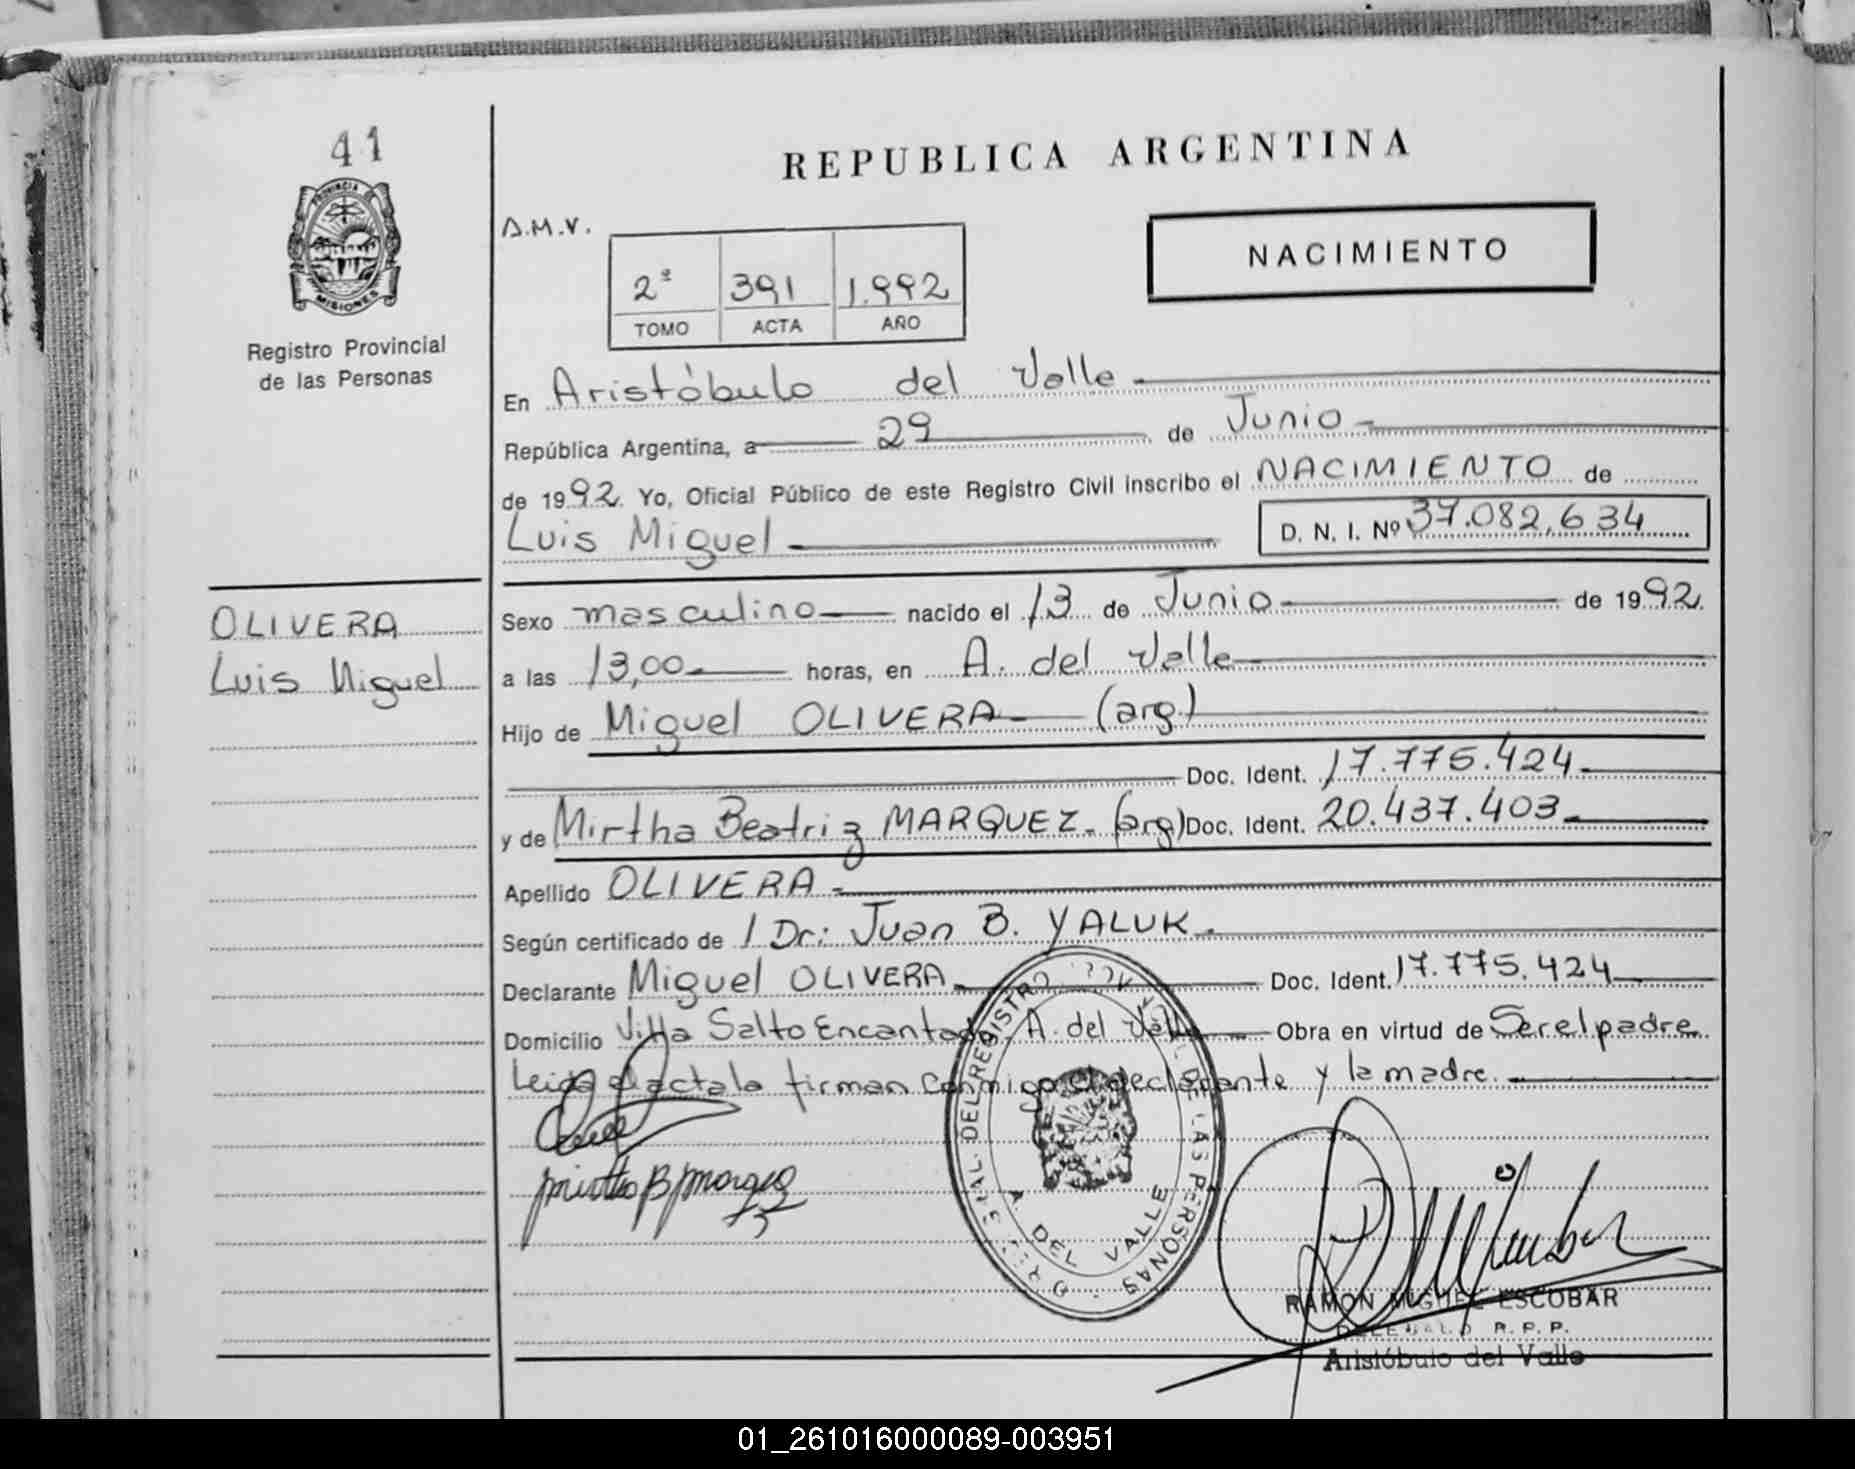 41
PROVINCIA DE
MISIONES
Registro Provincial
de las Personas
OLIVERA
Luis Miguel
REPUBLICA ARGENTINA
A.M.V.
2ª 391 1.992
TOMO ACTA AÑO
NACIMIENTO
En Aristóbulo del Valle
República Argentina, a 29 de Junio
de 1992. Yo, Oficial Público de este Registro Civil inscribo el NACIMIENTO de
Luis Miguel D. N. I. Nº 37.082,634
Sexo masculino nacido el 13 de Junio de 1992.
a las 13,00 horas, en A. del Valle
Hijo de Miguel OLIVERA (arg)
Doc. Ident. 17.775.424
y de Mirtha Beatriz MARQUEZ. (arg) Doc. Ident. 20.437.403
Apellido OLIVERA
Según certificado de / Dr: Juan B. YALUK.
Declarante Miguel OLIVERA Doc. Ident. 17.775.424
Domicilio Villa Salto Encantado, A. del Valle Obra en virtud de Ser el padre.
Leida el acta la firman conmigo el declarante y la madre.
A. DEL VALLE
DE LAS PERSONAS
RAMON MIGUEL ESCOBAR
DELEGADO R.P.P.
Aristóbulo del Valle
01_261016000089-003951